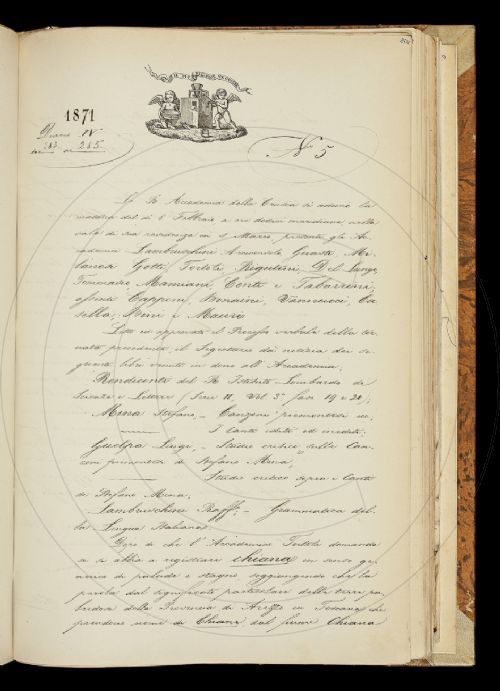 1871
Diario IV
283 a 285.
N.º 5
La R. Accademia della Crusca si adunò la
mattina del dì 8 Febbraio a ore dodici meridiane, nella
sala di sua residenza in S. Marco, presenti gli Ac-
cademici Lambruschini Arciconsolo, Guasti, Mi-
lanesi, Gotti, Tortoli, Rigutini, Del Lungo,
Mamiani, Conti e Tabarrini,
assenti Capponi, Bonaini, Vannucci, Ca-
sella, Bini e Mauri.
Letto ed approvato il Processo verbale della tor-
nata precedente, il Segretario dà notizia dei se-
guenti libri venuti in dono all'Accademia;
Rendiconti del R. Istituto Lombardo di
Scienze e Lettere, Serie II. Vol. 3º fasc. 19 e 20;
Mina Stefano, - Canzoni piemontesi
I Canti editi ed inediti.
Luigi, - Studio critico sulle Can-
zoni piemontesi di Stefano Mina,
Studio critico sopra i Canti
di Stefano Mina;
Lambruschini Raff. - Grammatica del-
la Lingua Italiana.
Dopo di che l'Accademico Tortoli domanda
se si abbia a registrare chiana in senso ge-
nerico di palude e stagno, soggiungendo che la
parola dal significato particolare della
della Provincia di Arezzo in Toscana, che
prendono nome di Chiana dal fiume Chiana